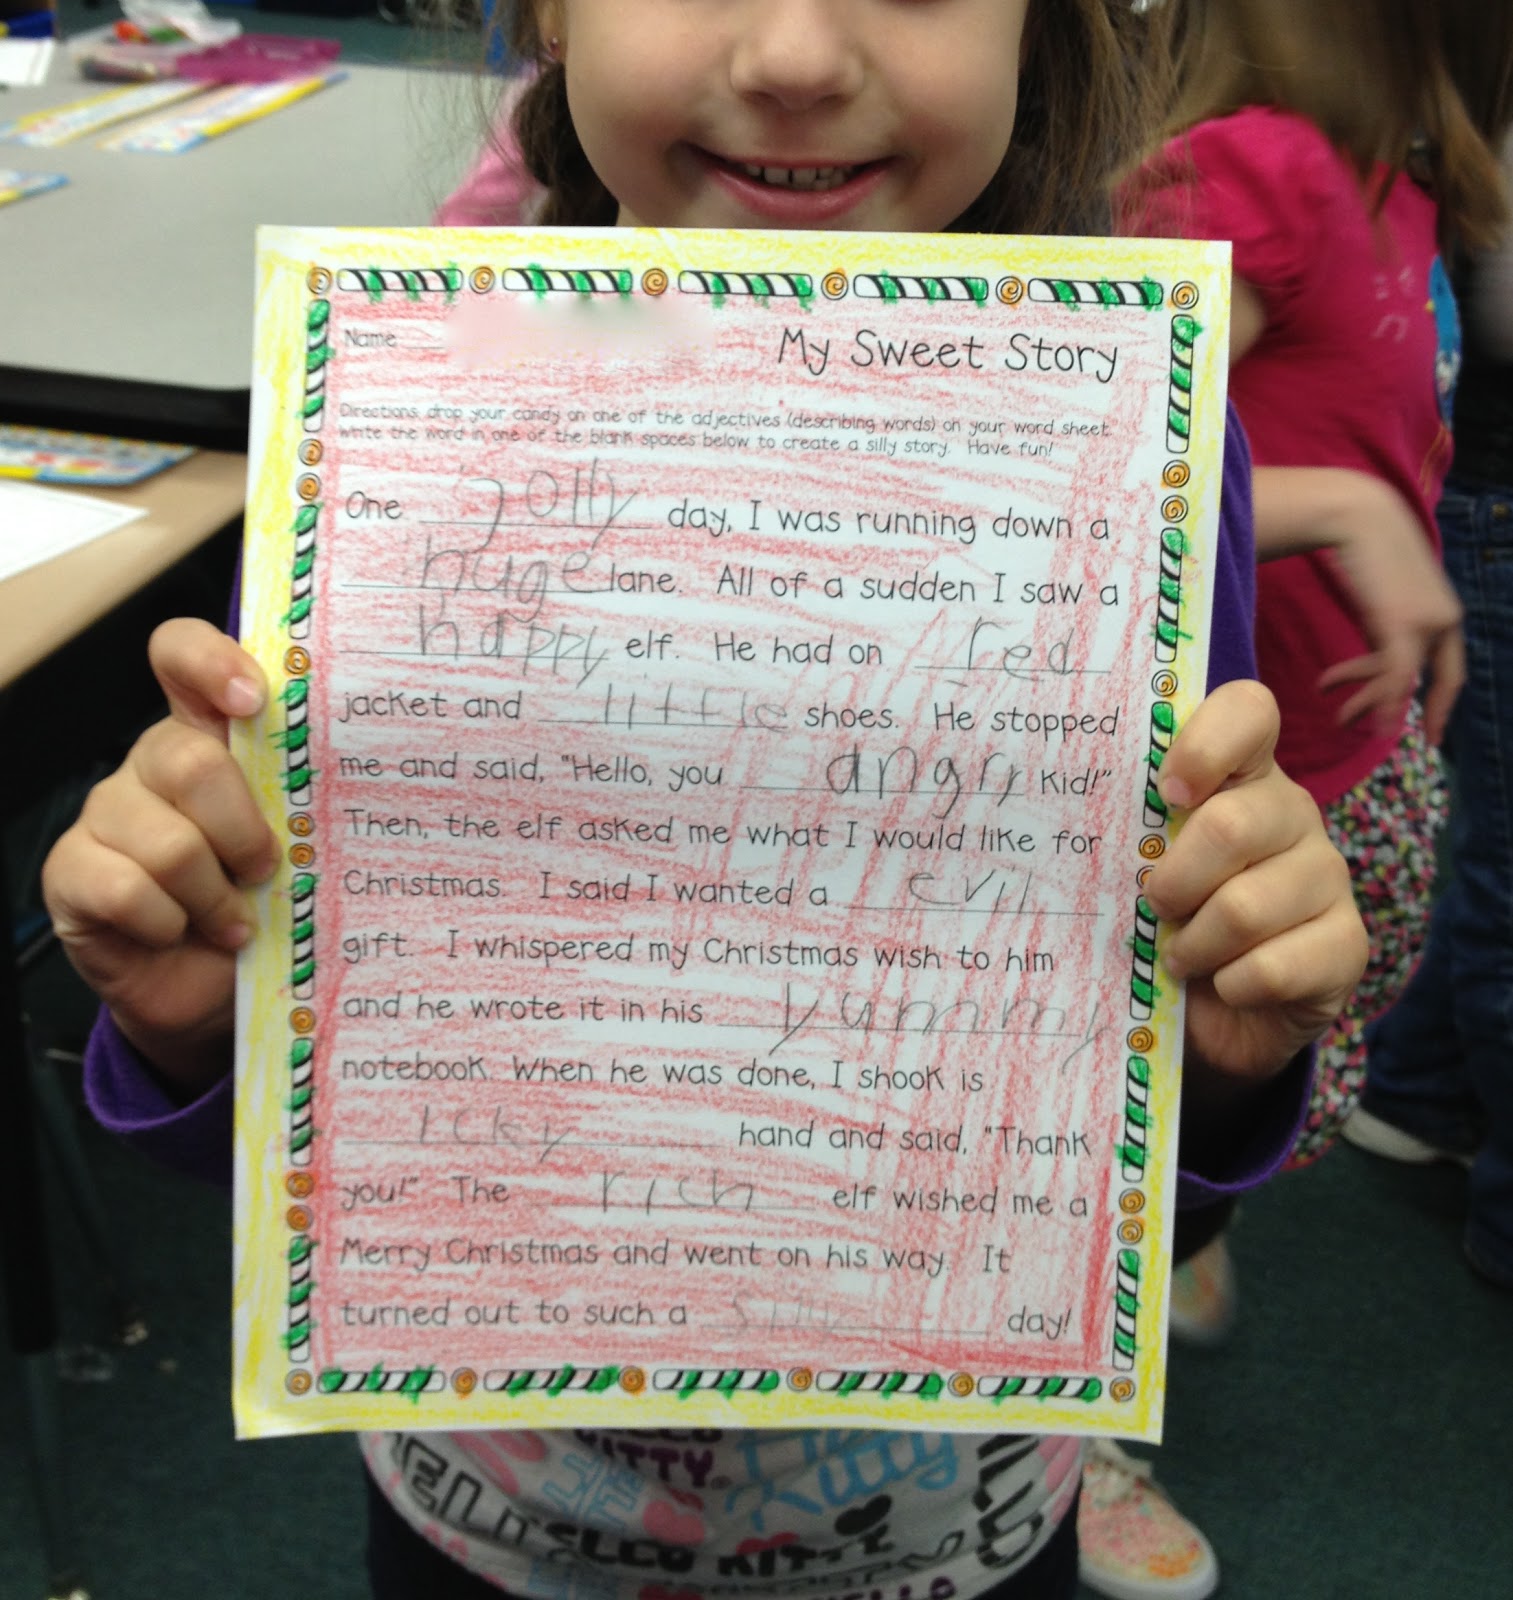 Name
My Sweet Story
Directions: drop your candy on one of the adjectives (describing words) on your word sheet.
Write the word in one of the blank spaces below to create a silly story. Have fun!
One jolly day, I was running down a
huge lane. All of a sudden I saw a
happy elf. He had on red
jacket and little shoes. He stopped
me and said, "Hello, you angry kid!"
Then, the elf asked me what I would like for
Christmas. I said I wanted a evil
gift. I whispered my Christmas wish to him
and he wrote it in his yummy
notebook. When he was done, I shook is
icky hand and said, "Thank
you!" The rich elf wished me a
Merry Christmas and went on his way. It
turned out to such a silly day!
HELLO KITTY
Kitty
HELLO KITTY